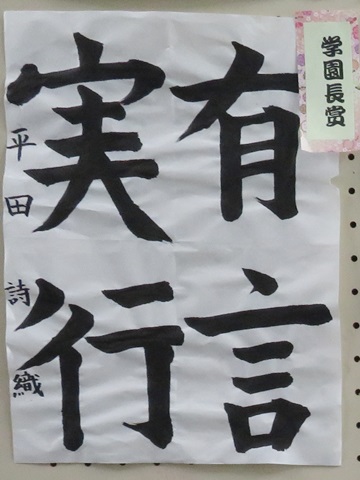 学園長賞
有言
実行
平田詩織